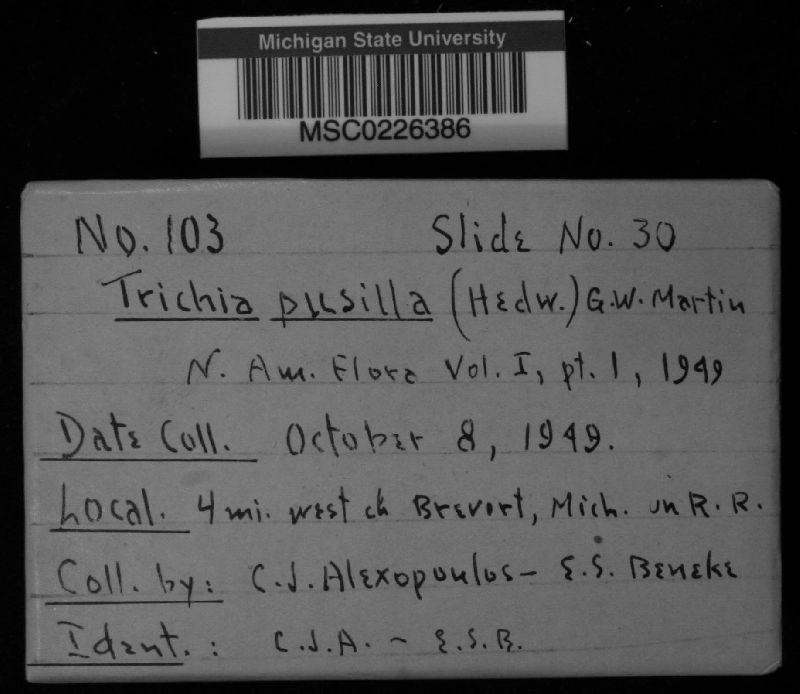 Michigan State University
MSC0226386
No. 103 Slide No. 30
Trichia pusilla (Hedw.) G.W. Martin
N. Am. Flora Vol. I, pt. 1, 1949
Date Coll. October 8, 1949.
Local. 4 mi. west Brevort, Mich. on R. R.
Coll. by: C.J. Alexopoulos - E.S. Beneke
Ident.: C.J.A. - E.S.B.